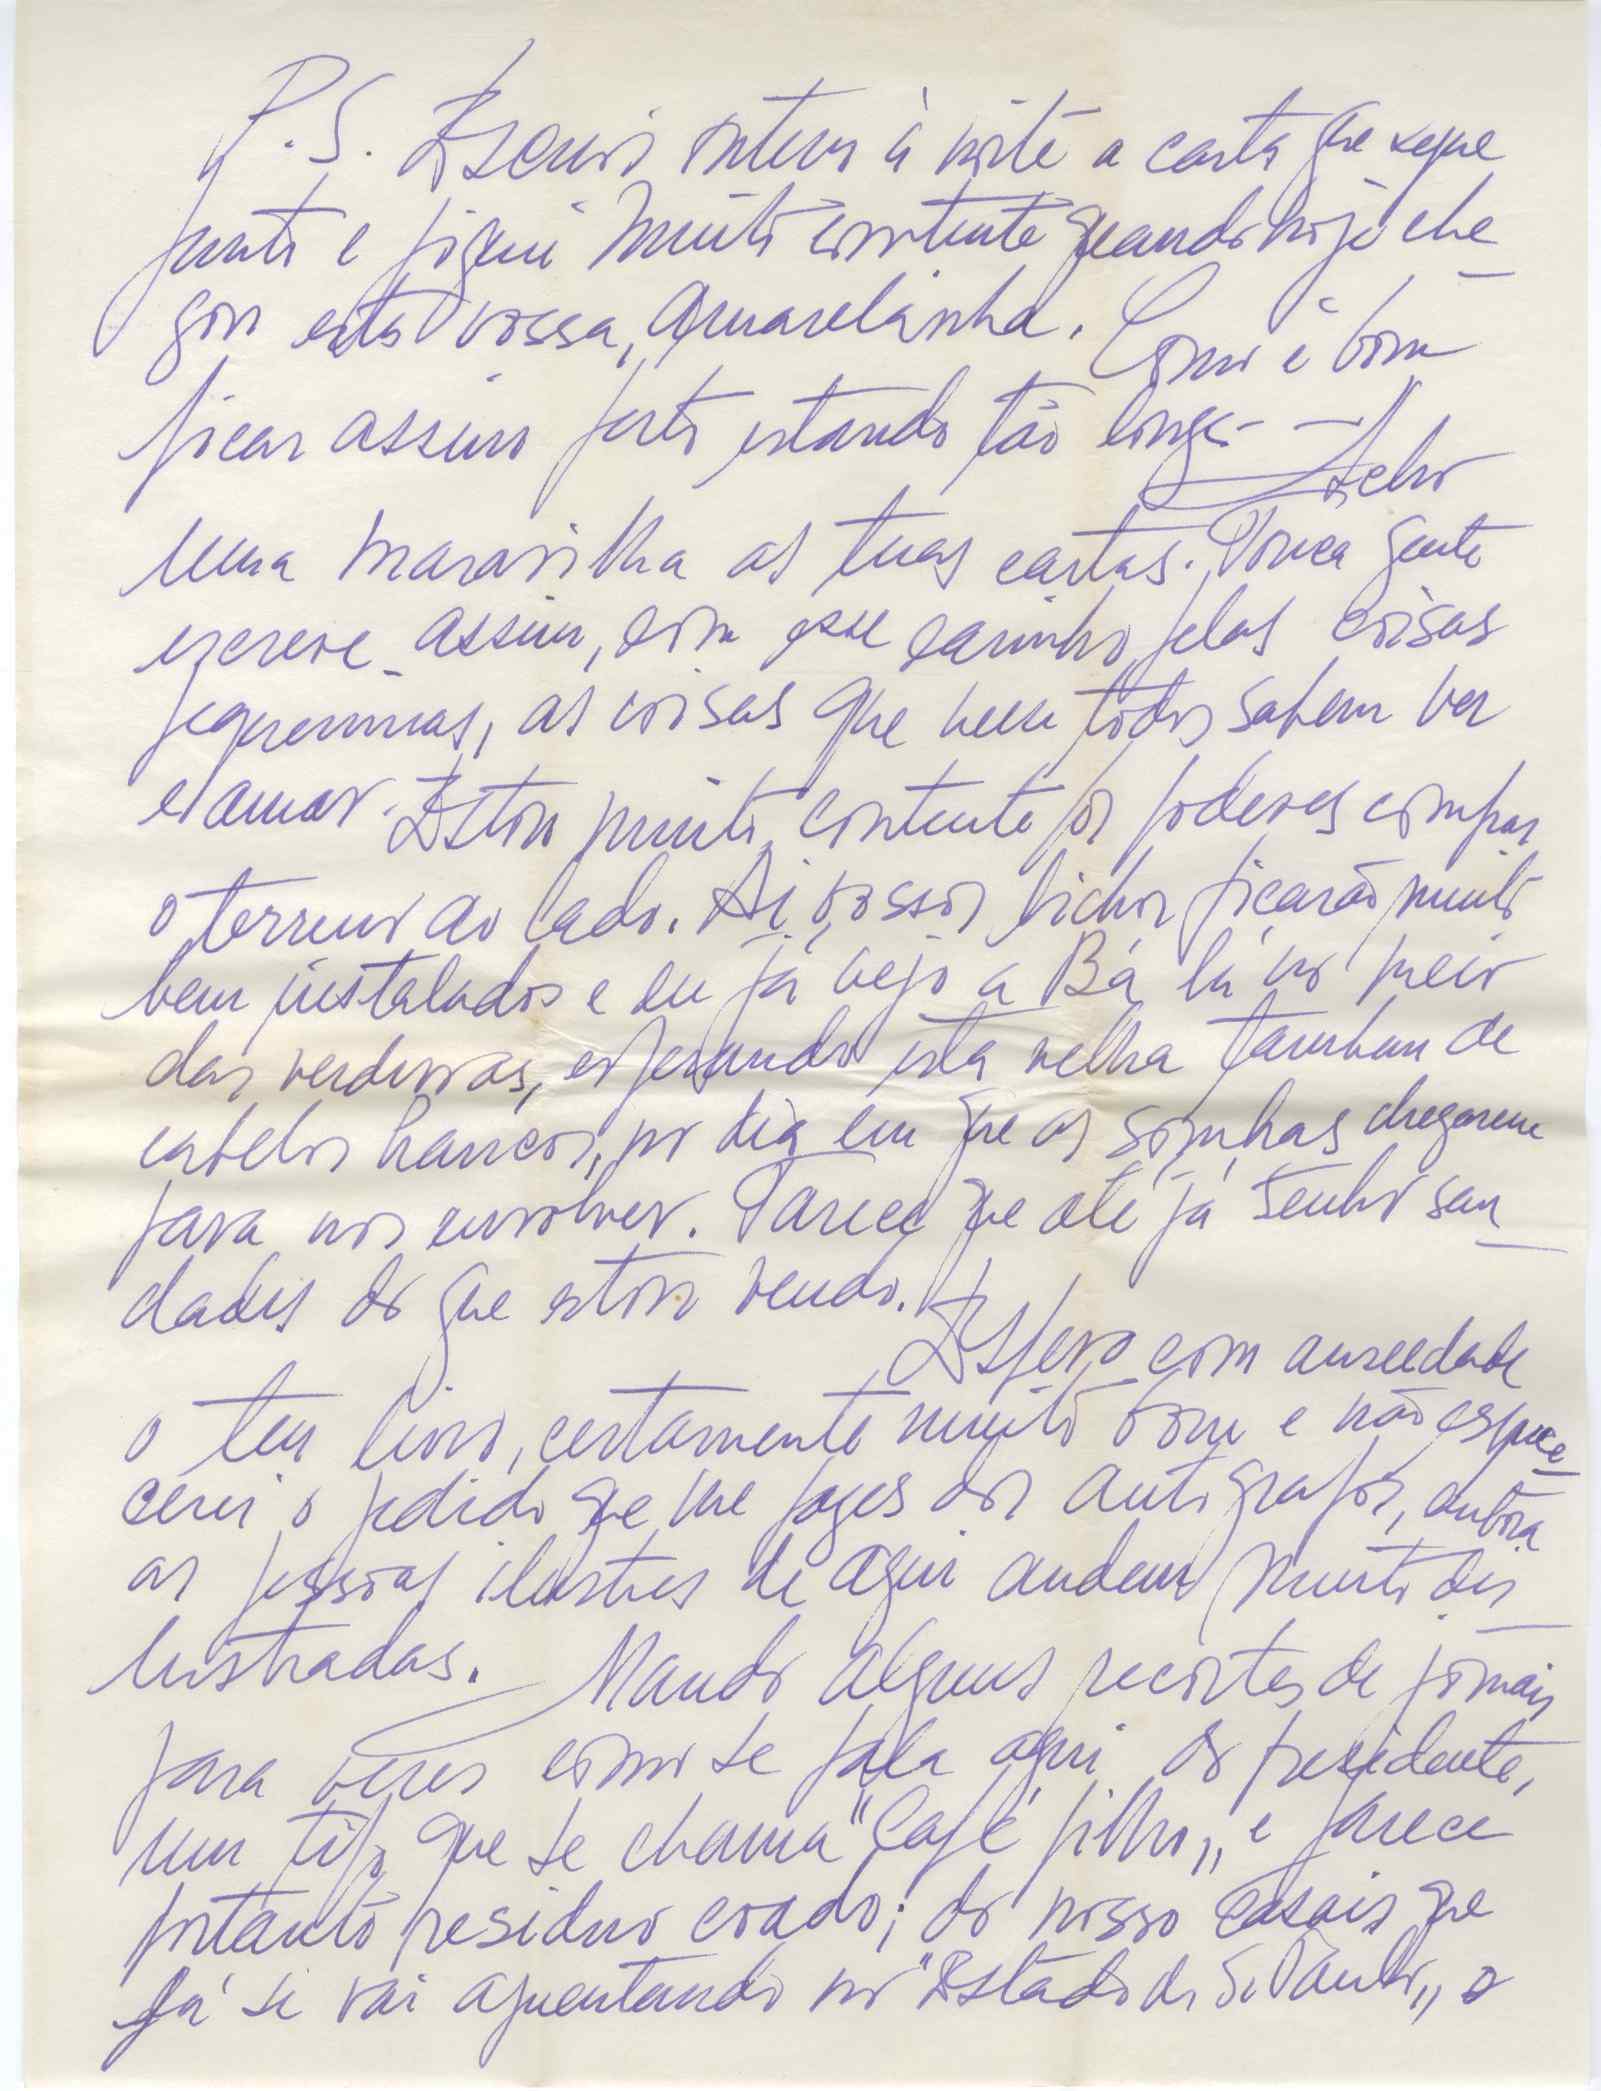 P.S. Escrevi ontem à noite a carta que segue
junto e fiquei muito contente quando hoje che-
gou esta vossa, amarelinha. Como é bom
ficar assim perto estando tão longe - - Acho
uma maravilha as tuas cartas. Pouca gente
escreve assim, com esse carinho pelas coisas
pequeninas, as coisas que nem todos sabem ver
e amar. Estou muito contente por poderes compar
o terreno ao lado. Aí, vossos bichos ficarão muito
bem instalados e eu já vejo a Bá lá no meio
das verduras, esperando esta velha tambem de
cabelos brancos, no dia em que as sombras chegarem
para nos envolver. Parece que até já tenho sau-
dades do que estou vendo. Espero com ansiedade
o teu livro, certamente muito bom e não esque-
cerei o pedido que me fazes dos autografos, embora
as pessoas ilustres de aqui andem muito des-
lustradas. Mando alguns recortes de jornais
para veres como se fala aqui do presidente,
um tipo que se chama "Café filho" e parece
portanto residuo coado; do nosso Casais que
já se vai aguentando no "Estado de S. Paulo" o